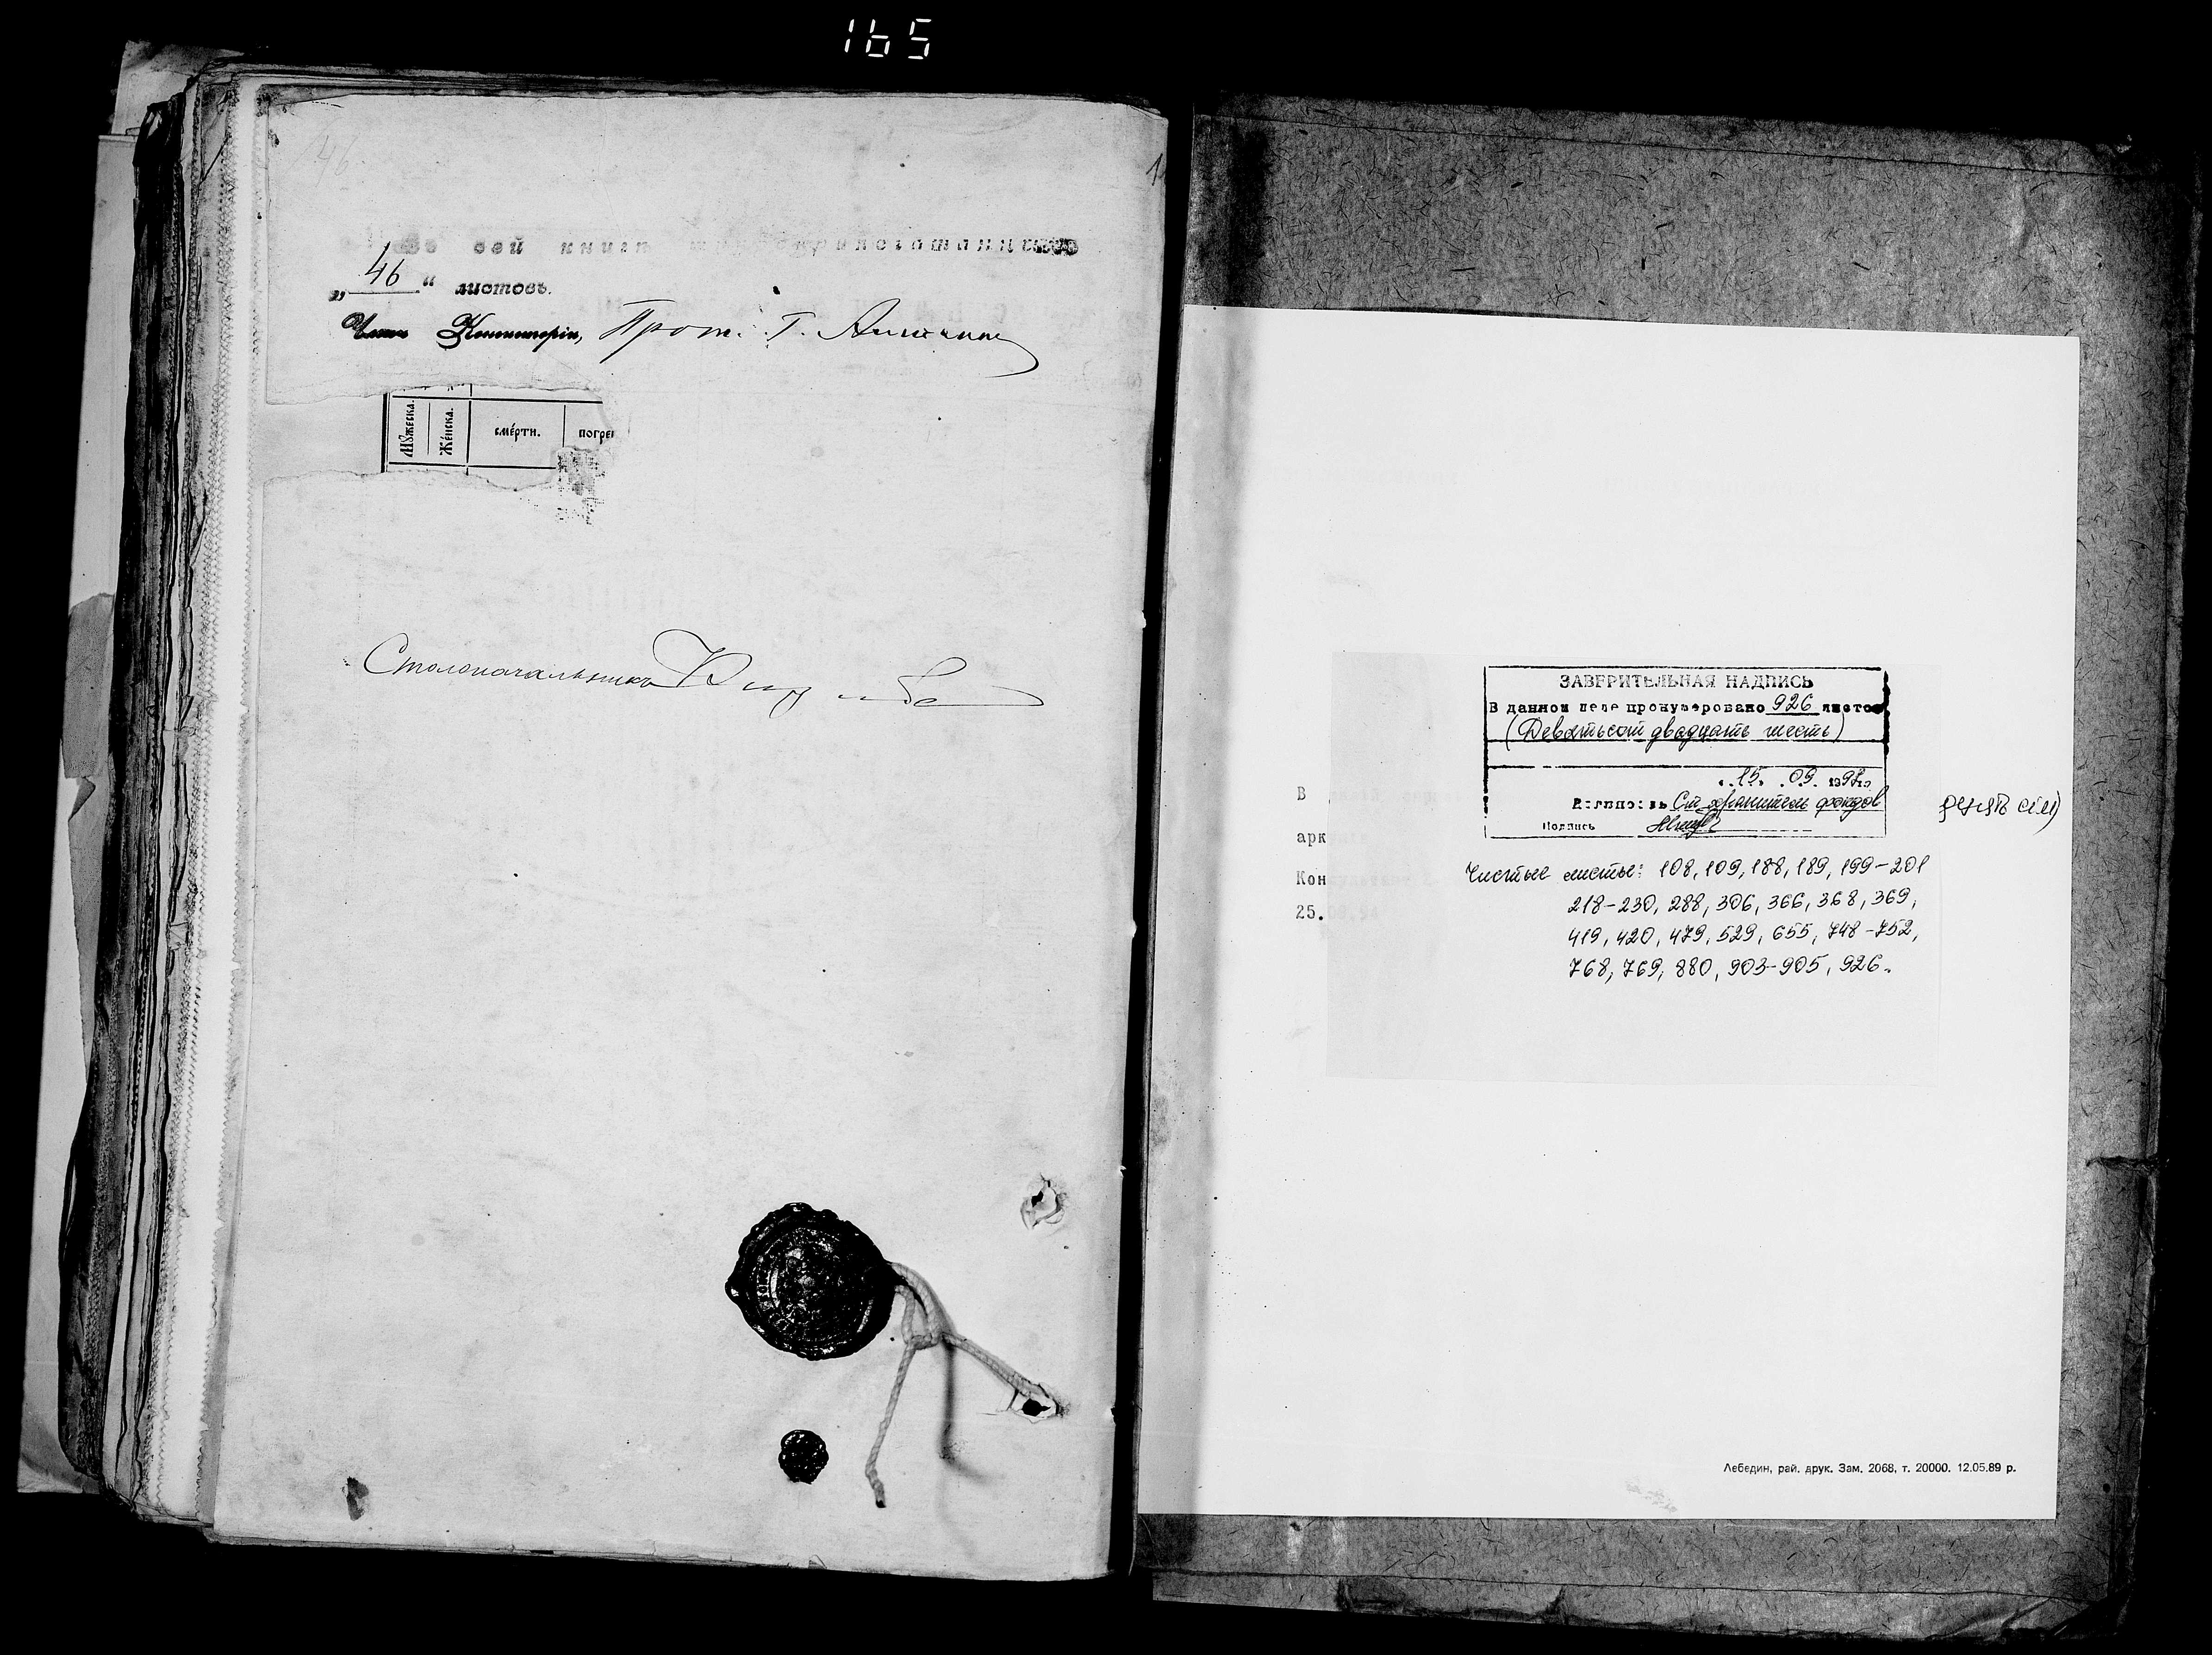 165
46
сей книги
„ 46 “ листовъ.
Членъ Консисторіи, Прот. Г.
Мꙋжеска.
Же́нска.
сме́рти.
погре
Столоначальникъ
ЗАВЕРИТЕЛЬНАЯ НАДПИСЬ
В данном деле пронумеровано 926 листов
(Девятьсот двадцать шесть)
„15„ 09. 199
Должность Ст. хранитель фондов
Подпись
В
арк
Кон
25.09.94
Чистые листы: 108, 109, 188, 189, 199-201
218-230, 288, 306, 366, 368, 369,
419, 420, 479, 529, 655, 748-752,
768, 769, 880, 903-905, 926.
Лебедин, рай. друк. Зам. 2068, т. 20000. 12.05.89 р.